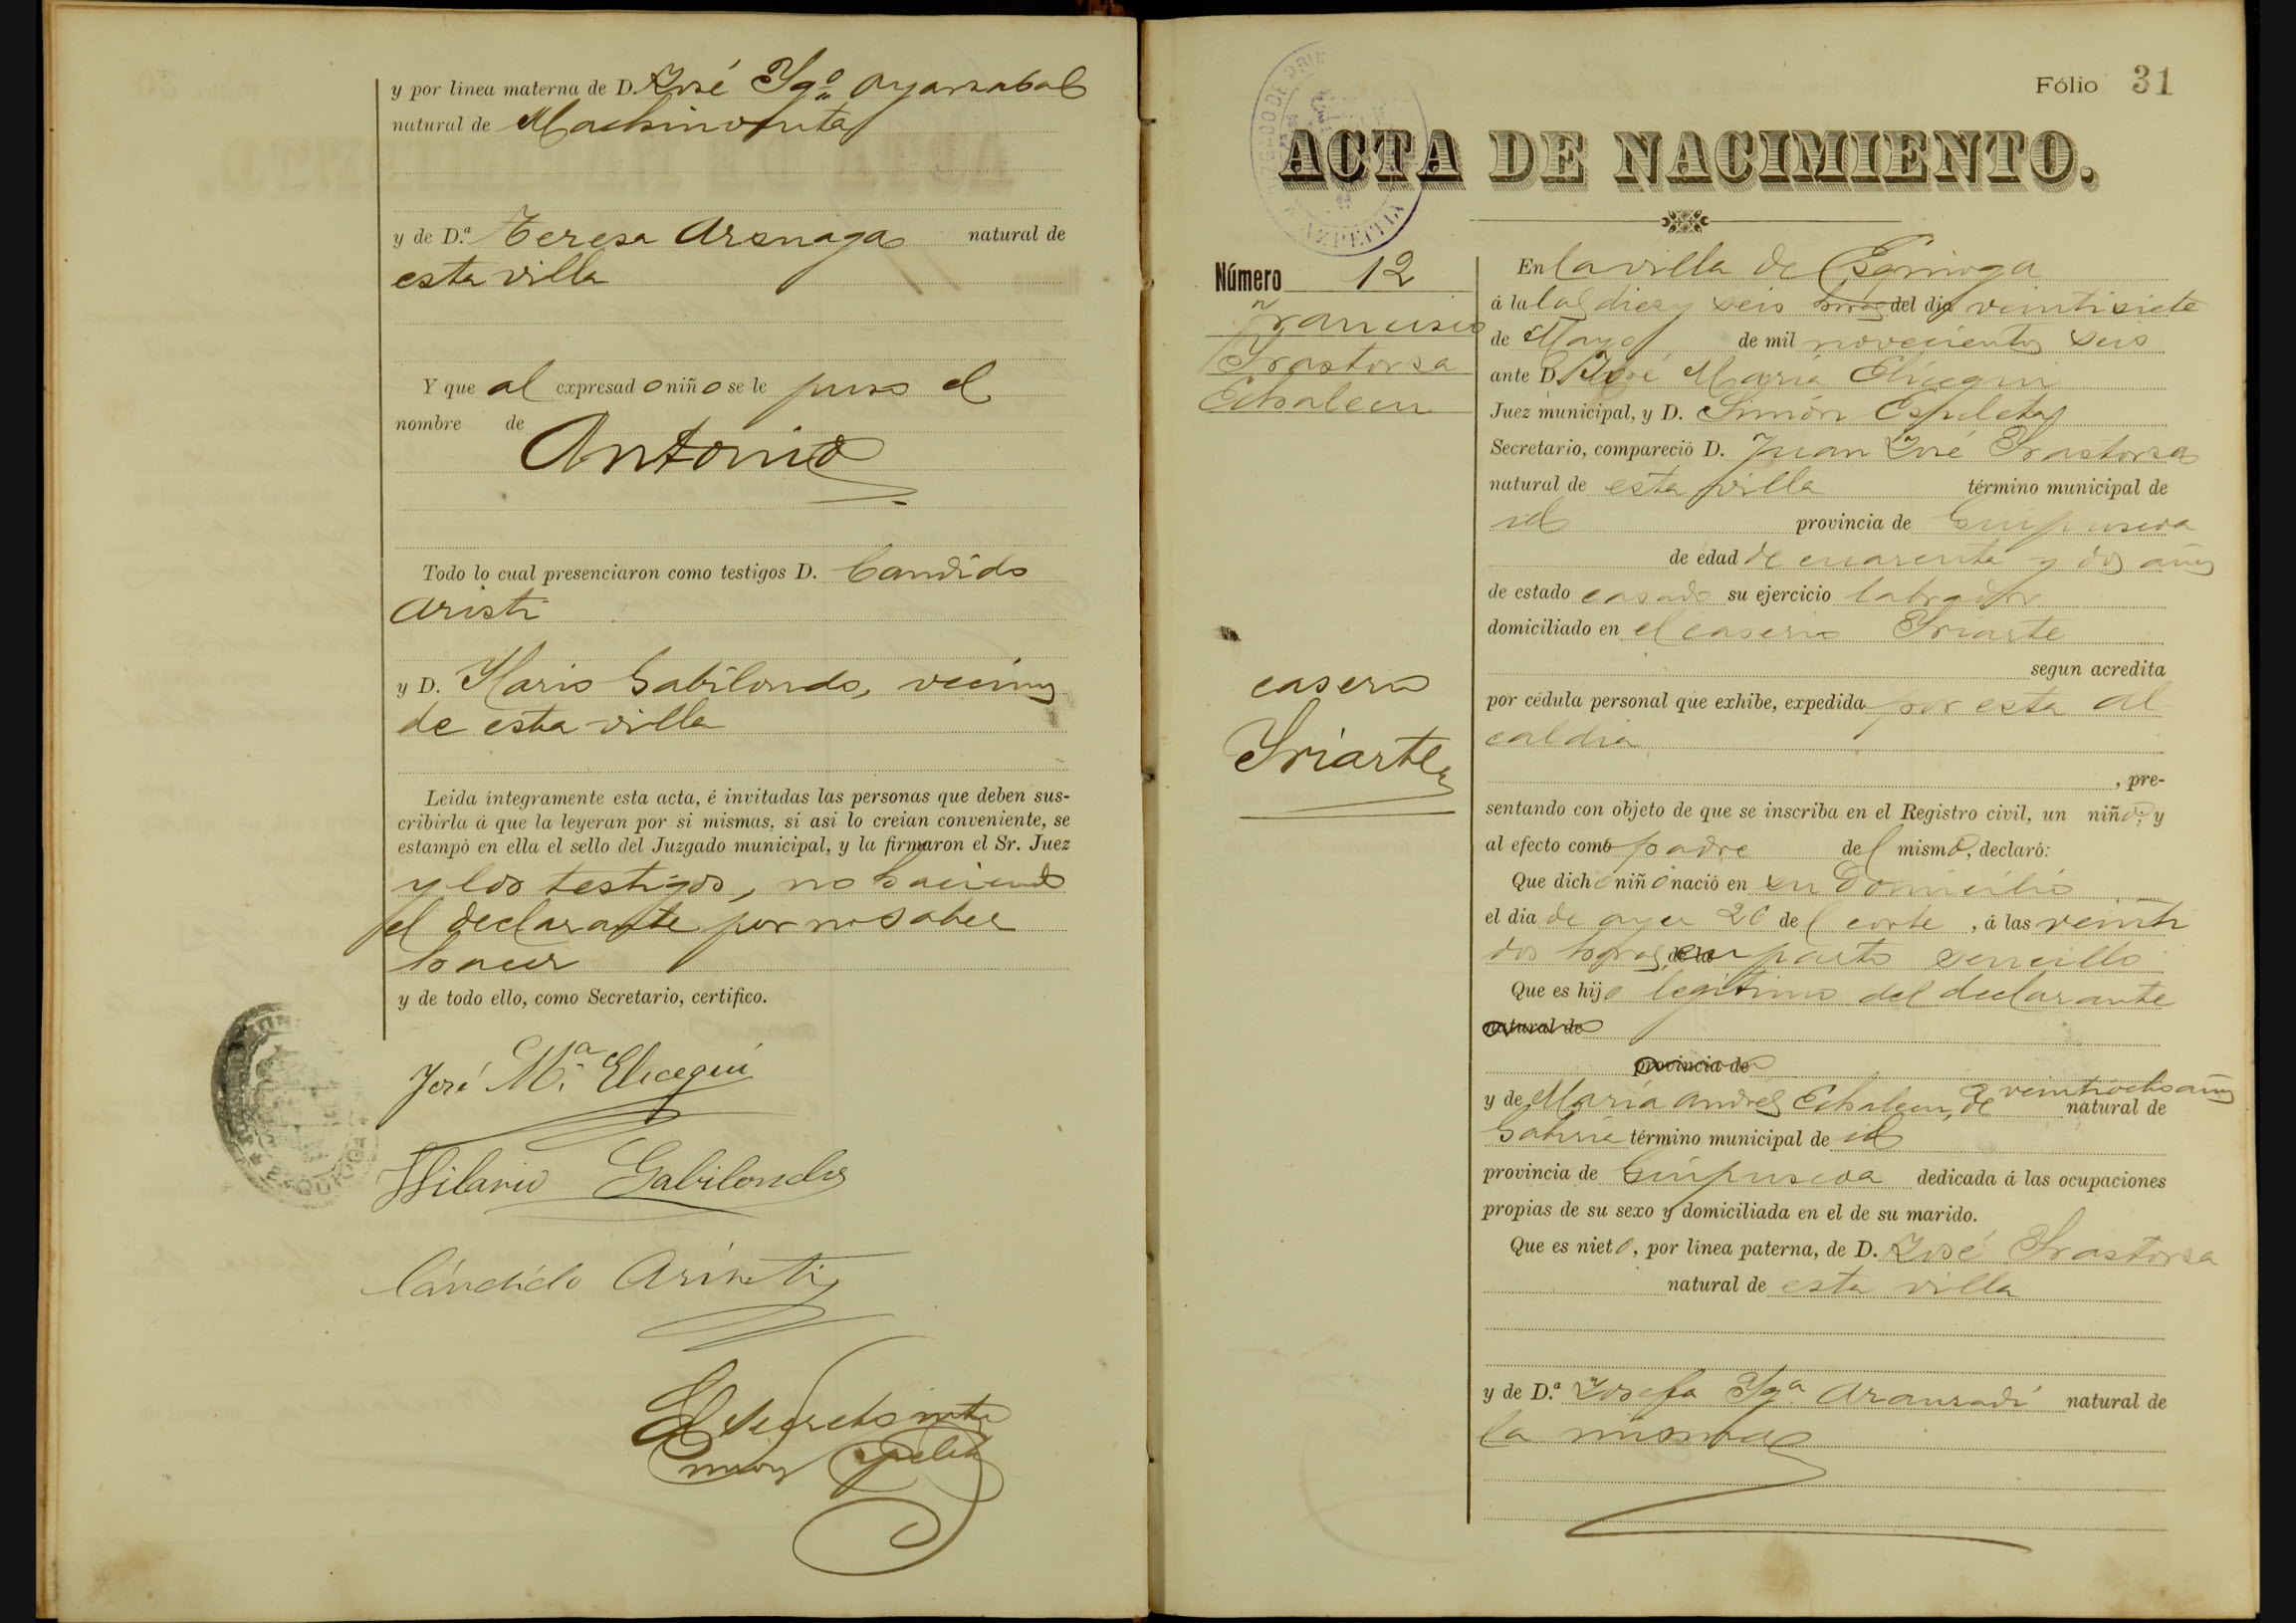 y por línea materna de D. José Ygº Oyarzabal
natural de Machinventa
y de D.ª Teresa Arsuaga natural de
esta villa
Y que al expresado niño se le puso el
nombre de
Antonio
Todo lo cual presenciaron como testigos D. Candido
Aristi
y D. Ylario Gabilondo, vecinos
de esta villa
Leida íntegramente esta acta, é invitadas las personas que deben sus-
cribirla á que la leyeran por si mismas, si asi lo creian conveniente, se
estampó en ella el sello del Juzgado municipal, y la firmaron el Sr. Juez
y los testigos, no haciendo
el declarante por no saber
hacer
y de todo ello, como Secretario, certifico.
José Mª Elicegui
Hilario Gabilondo
Cándido Aristi
El Secretario
Simon Espeleta
Fólio 31
ACTA DE NACIMIENTO.
AZPEITIA
Número 12
Francisco
Yrastorza
Echalecu
caserio
Yriarte
En la villa de Ezquioga
á la las diez y seis horas del dia veintisiete
de Mayo de mil novecientos seis
ante D. José María Elicegui
Juez municipal, y D. Simón Espeleta
Secretario, compareció D. Juan José Yrastorza
natural de esta villa término municipal de
id provincia de Guipuscoa
de edad de cuarenta y dos años
de estado casado su ejercicio labrador
domiciliado en el caserio Yriarte
segun acredita
por cédula personal que exhibe, expedida por esta al
caldia
, pre-
sentando con objeto de que se inscriba en el Registro civil, un niño; y
al efecto como padre del mismo, declaró:
Que dicho niño nació en su domicilio
el dia de ayer 26 del corte, á las veinti
dos horas en parto sencillo
Que es hijo legítimo del declarante
natural de
provincia de
y de María Andrés Echalecu, de veintiocho años natural de
Gabiria término municipal de id
provincia de Guipuscoa dedicada á las ocupaciones
propias de su sexo y domiciliada en el de su marido.
Que es nieto, por línea paterna, de D. José Yrastorza
natural de esta villa
y de D.ª Josefa Ygª Aranzadi natural de
la misma